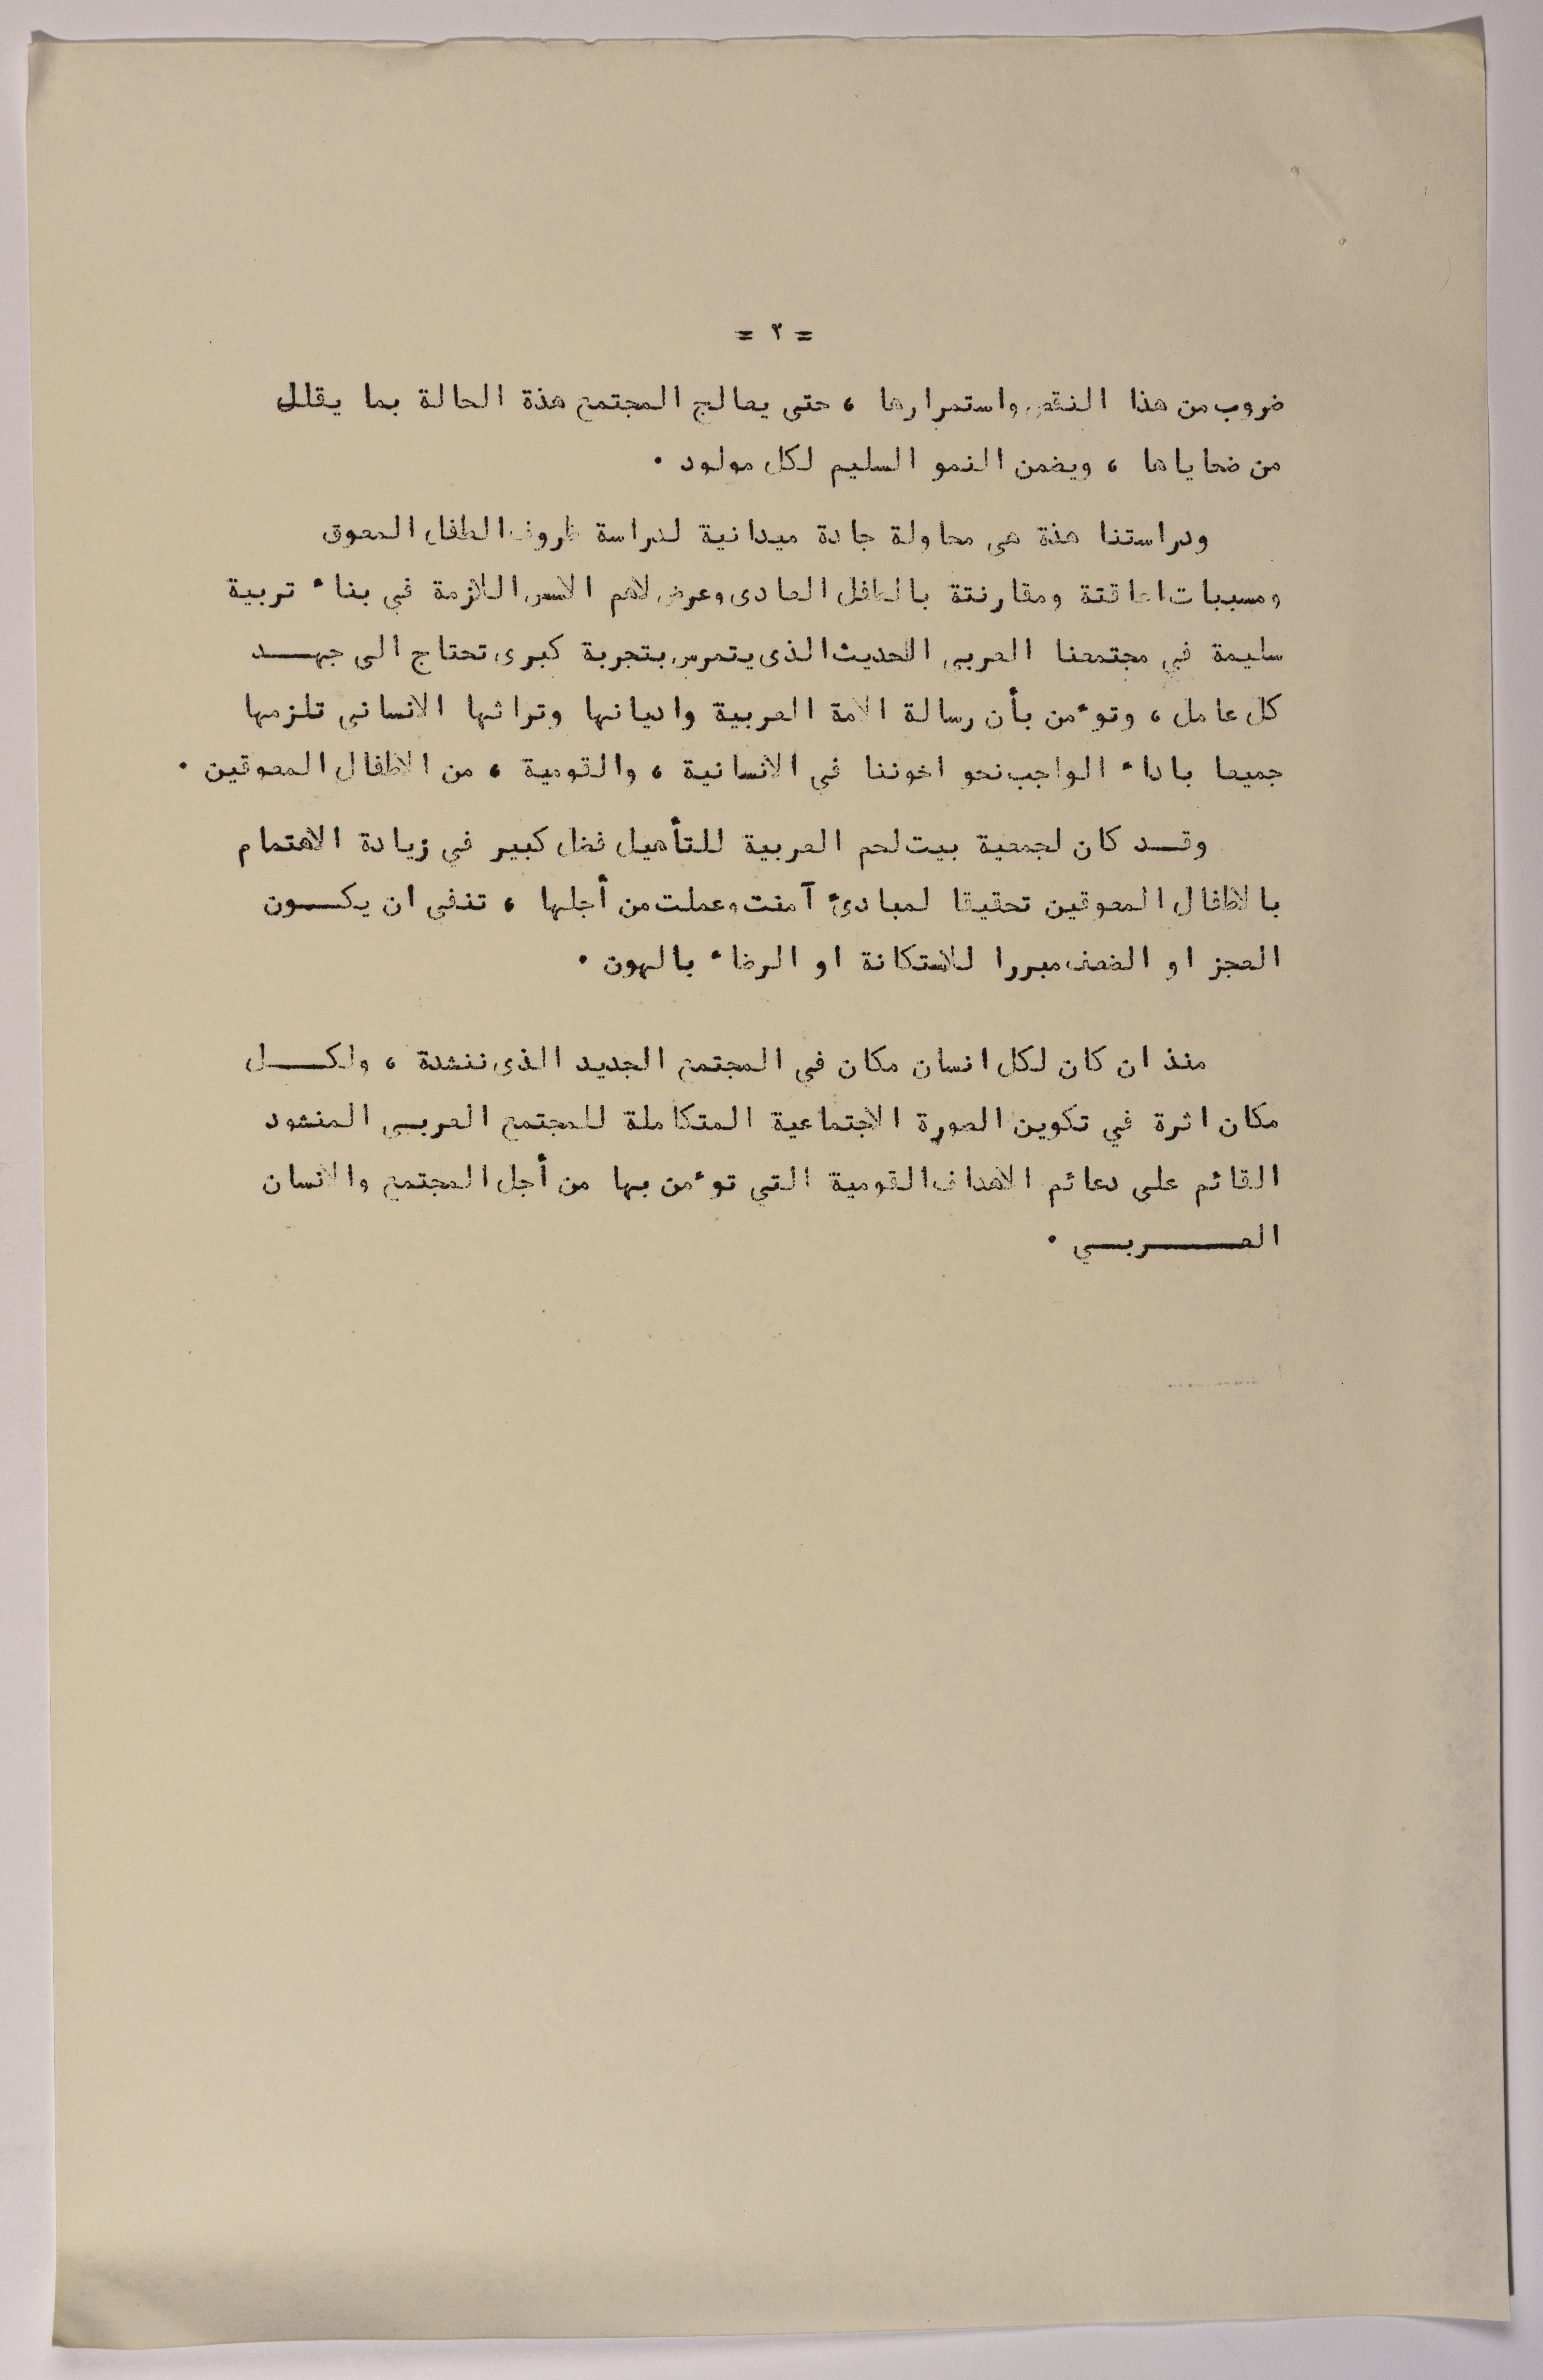 = ٢ =
ضروب من هذا النقص واستمرارها ، حتى يعالج المجتمع هذة الحالة بما يقلل
من ضحاياها ، ويضمن النمو السليم لكل مولود .
ودراستنا هذة هي محاولة جادة ميدانية لدراسة ظروف الطفل المعوق
ومسببات اعاقتة ومقارنتة بالطفل العادى وعرض لاهم الاسس اللازمة في بناء تربية
سليمة في مجتمعنا العربي الحديث الذى يتمرس بتجربة كبرى تحتاج الى جهـــد
كل عامل ، وتوءمن بأن رسالة الامة العربية واديانها وتراثها الانسانى تلزمها
جميعا باداء الواجب نحو اخوننا في الانسانية ، والقومية ، من الاطفال المعوقين .
وقــد كان لجمعية بيت لحم العربية للتأهيل فضل كبير في زيادة الاهتمام
بالاطفال المعوقين تحقيقا لمبادئ آمنت وعملت من أجلها ، تنفي ان يكـــون
العجز او الضعف مبررا للاستكانة او الرضاء بالهون .
منذ ان كان لكل انسان مكان في المجتمع الجديد الذى ننشدة ، ولكـــل
مكان اثرة في تكوين الصورة الاجتماعية المتكاملة للمجتمع العربــي المنشود
القائم على دعائم الاهداف القومية التي توءمن بها من أجل المجتمع والانسان
العـــــربــــي .